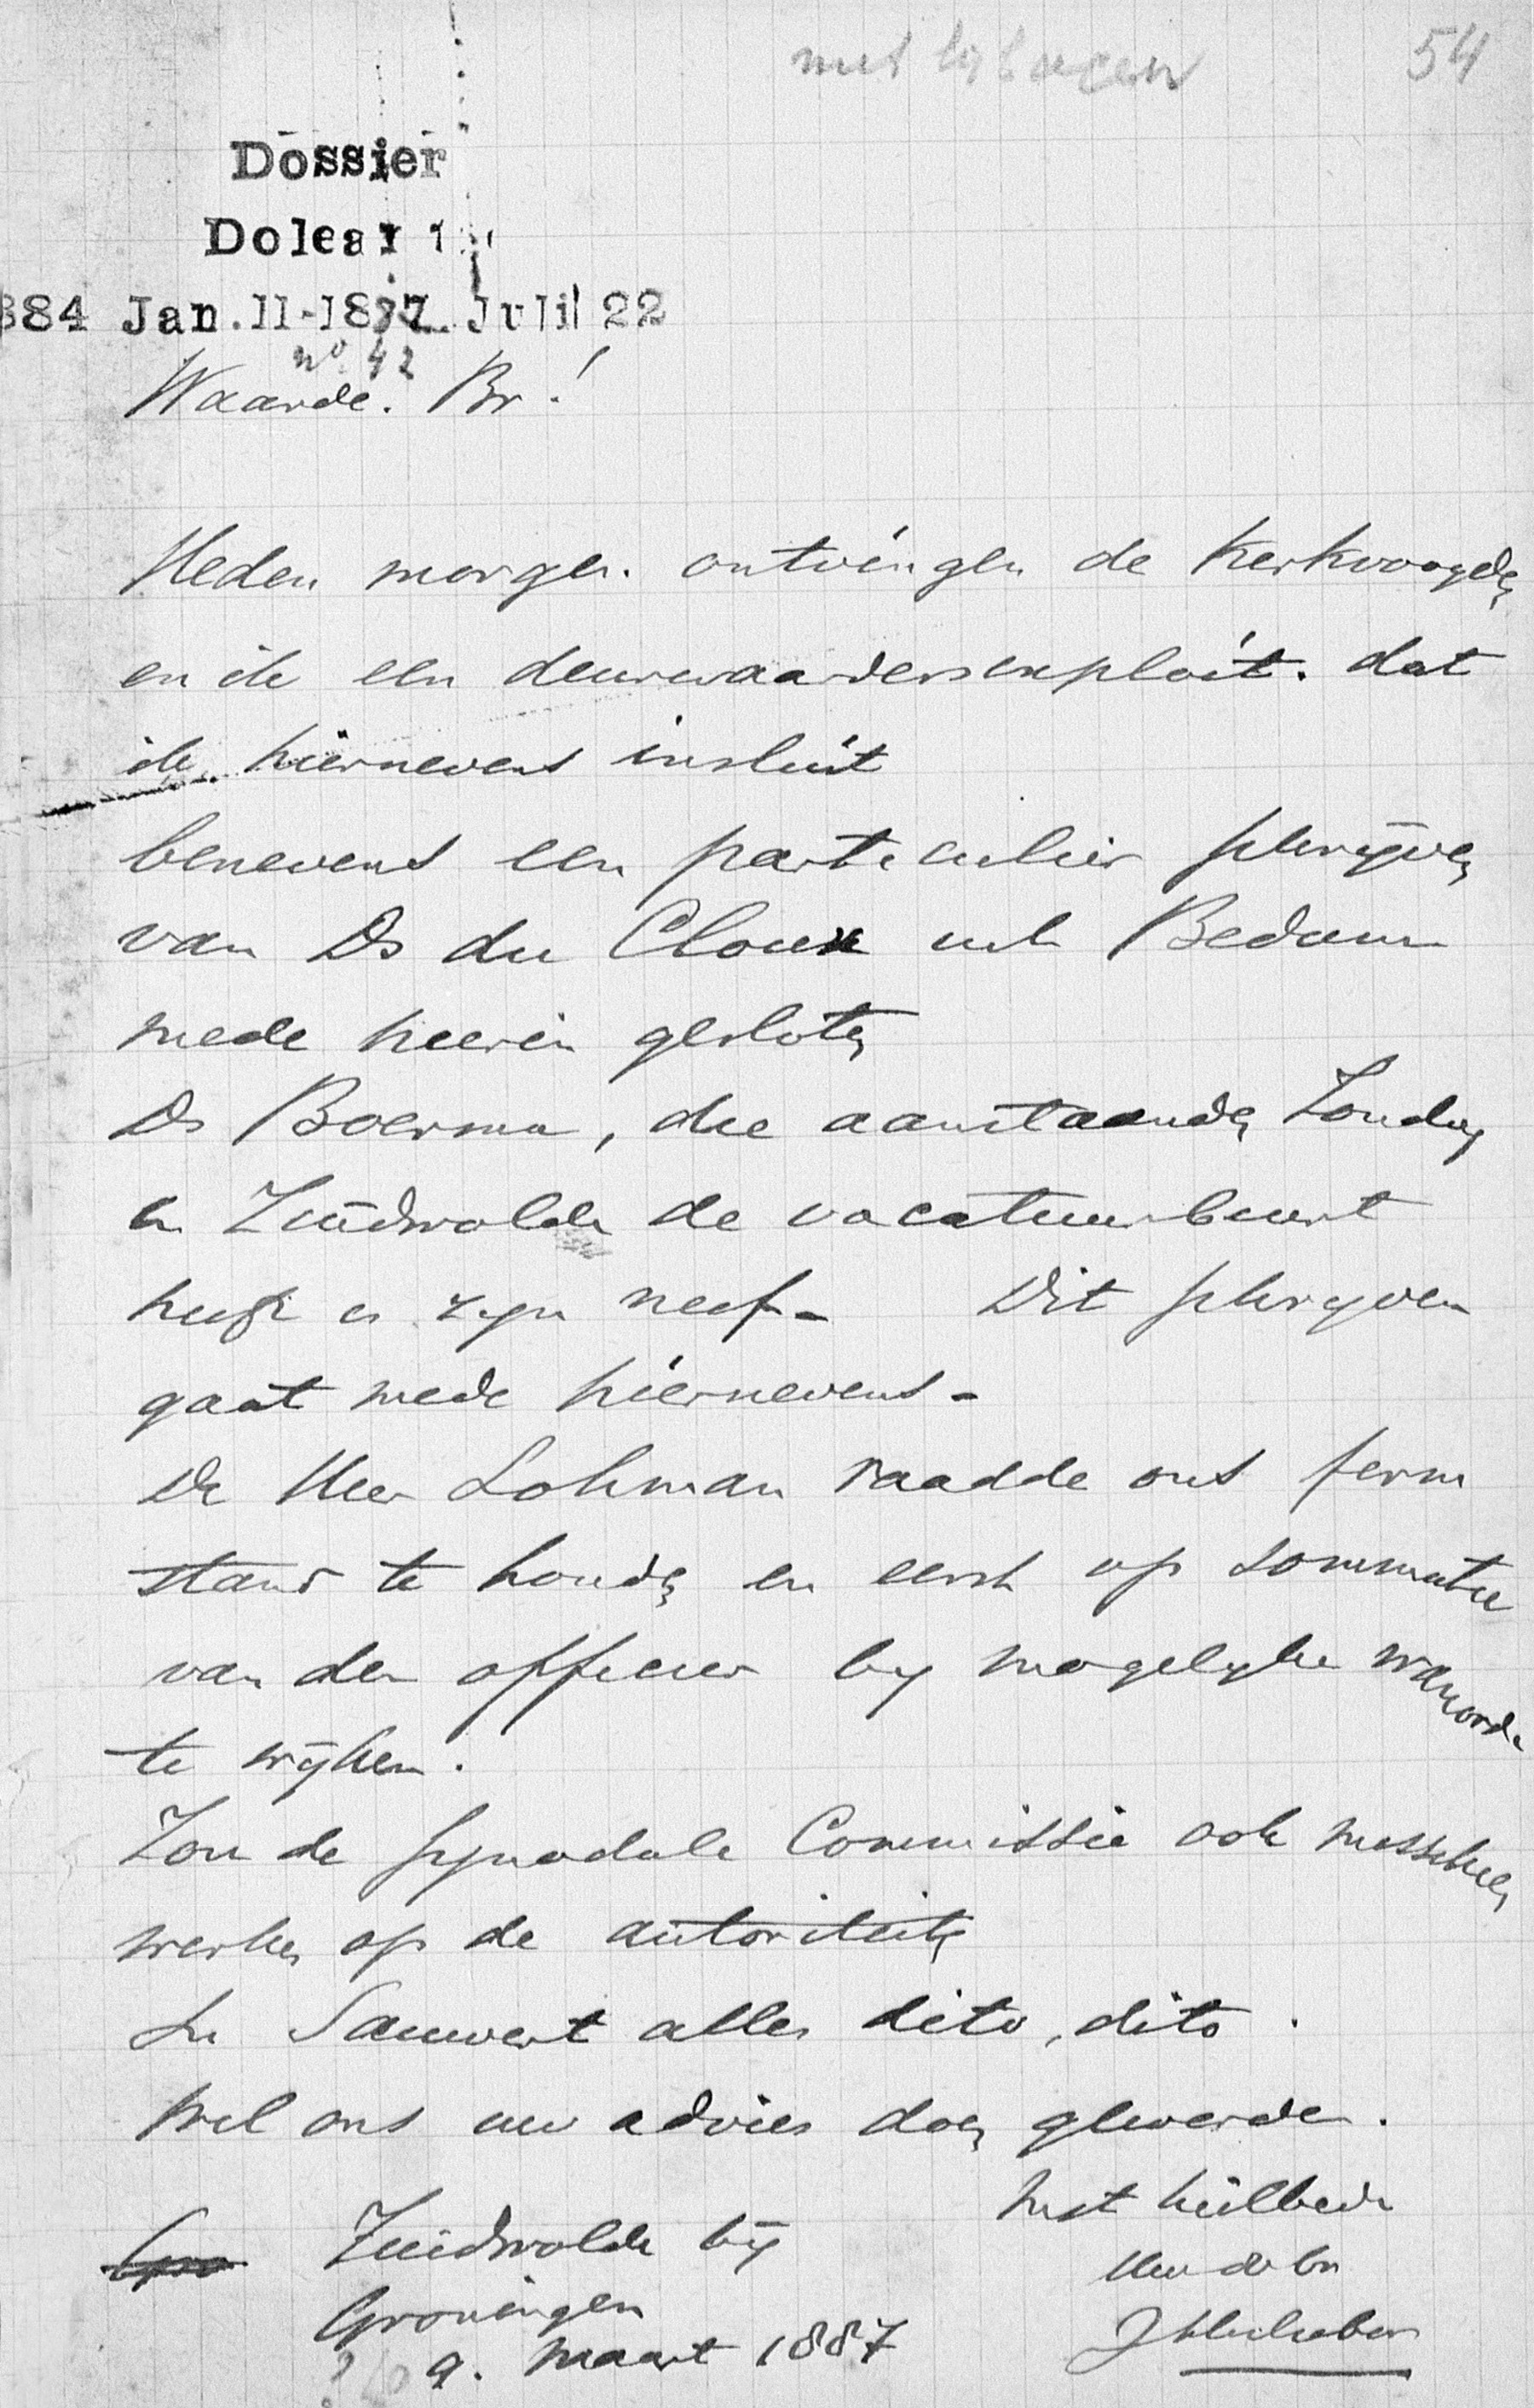 met bijlagen 54
Dossier
Doleantie
884 Jan.11-1887 Juli 22
no. 42
Waarde. Br.!
Heden morgen ontvingen de Kerkvoogden
en ik een deurwaardersexploit. dat
ik hiernevens insluit
benevens een particulier schrijven
van Ds du Cloux uit Bedum
mede hierin gesloten
Ds Boersma, die aanstaanden Zondag
in Zuidwolde de vacatuurbeurt
heeft is zijn neef - Dit schrijven
gaat mede hiernevens -
De Heer Lohman raadde ons ferm
stand te houden en eerst op sommatie
van den officier bij mogelijke wanorde
te wijken.
Zou de synodale Commissie ook misschien
werken op de autoriteiten
In Sauwert alles dito, dito.
Wil ons uw advies doen geworden.
Met heilbede
Zuidwolde bij
Uw dw br
Groningen
9. Maart 1887